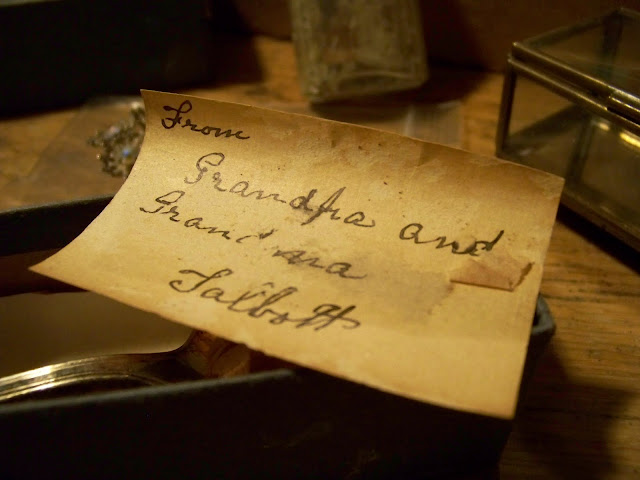 From
Grandpa and
Grandma
Talbott